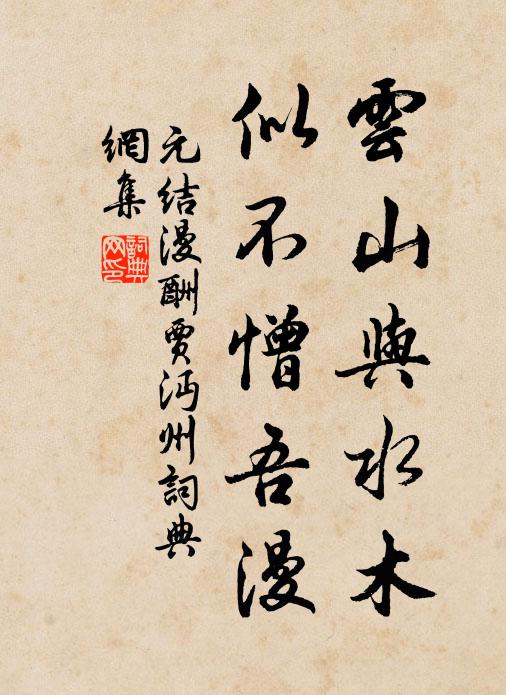 雲山與水木
似不憎吾漫
元結漫酬賈沔州詞典
網集
詞典网印